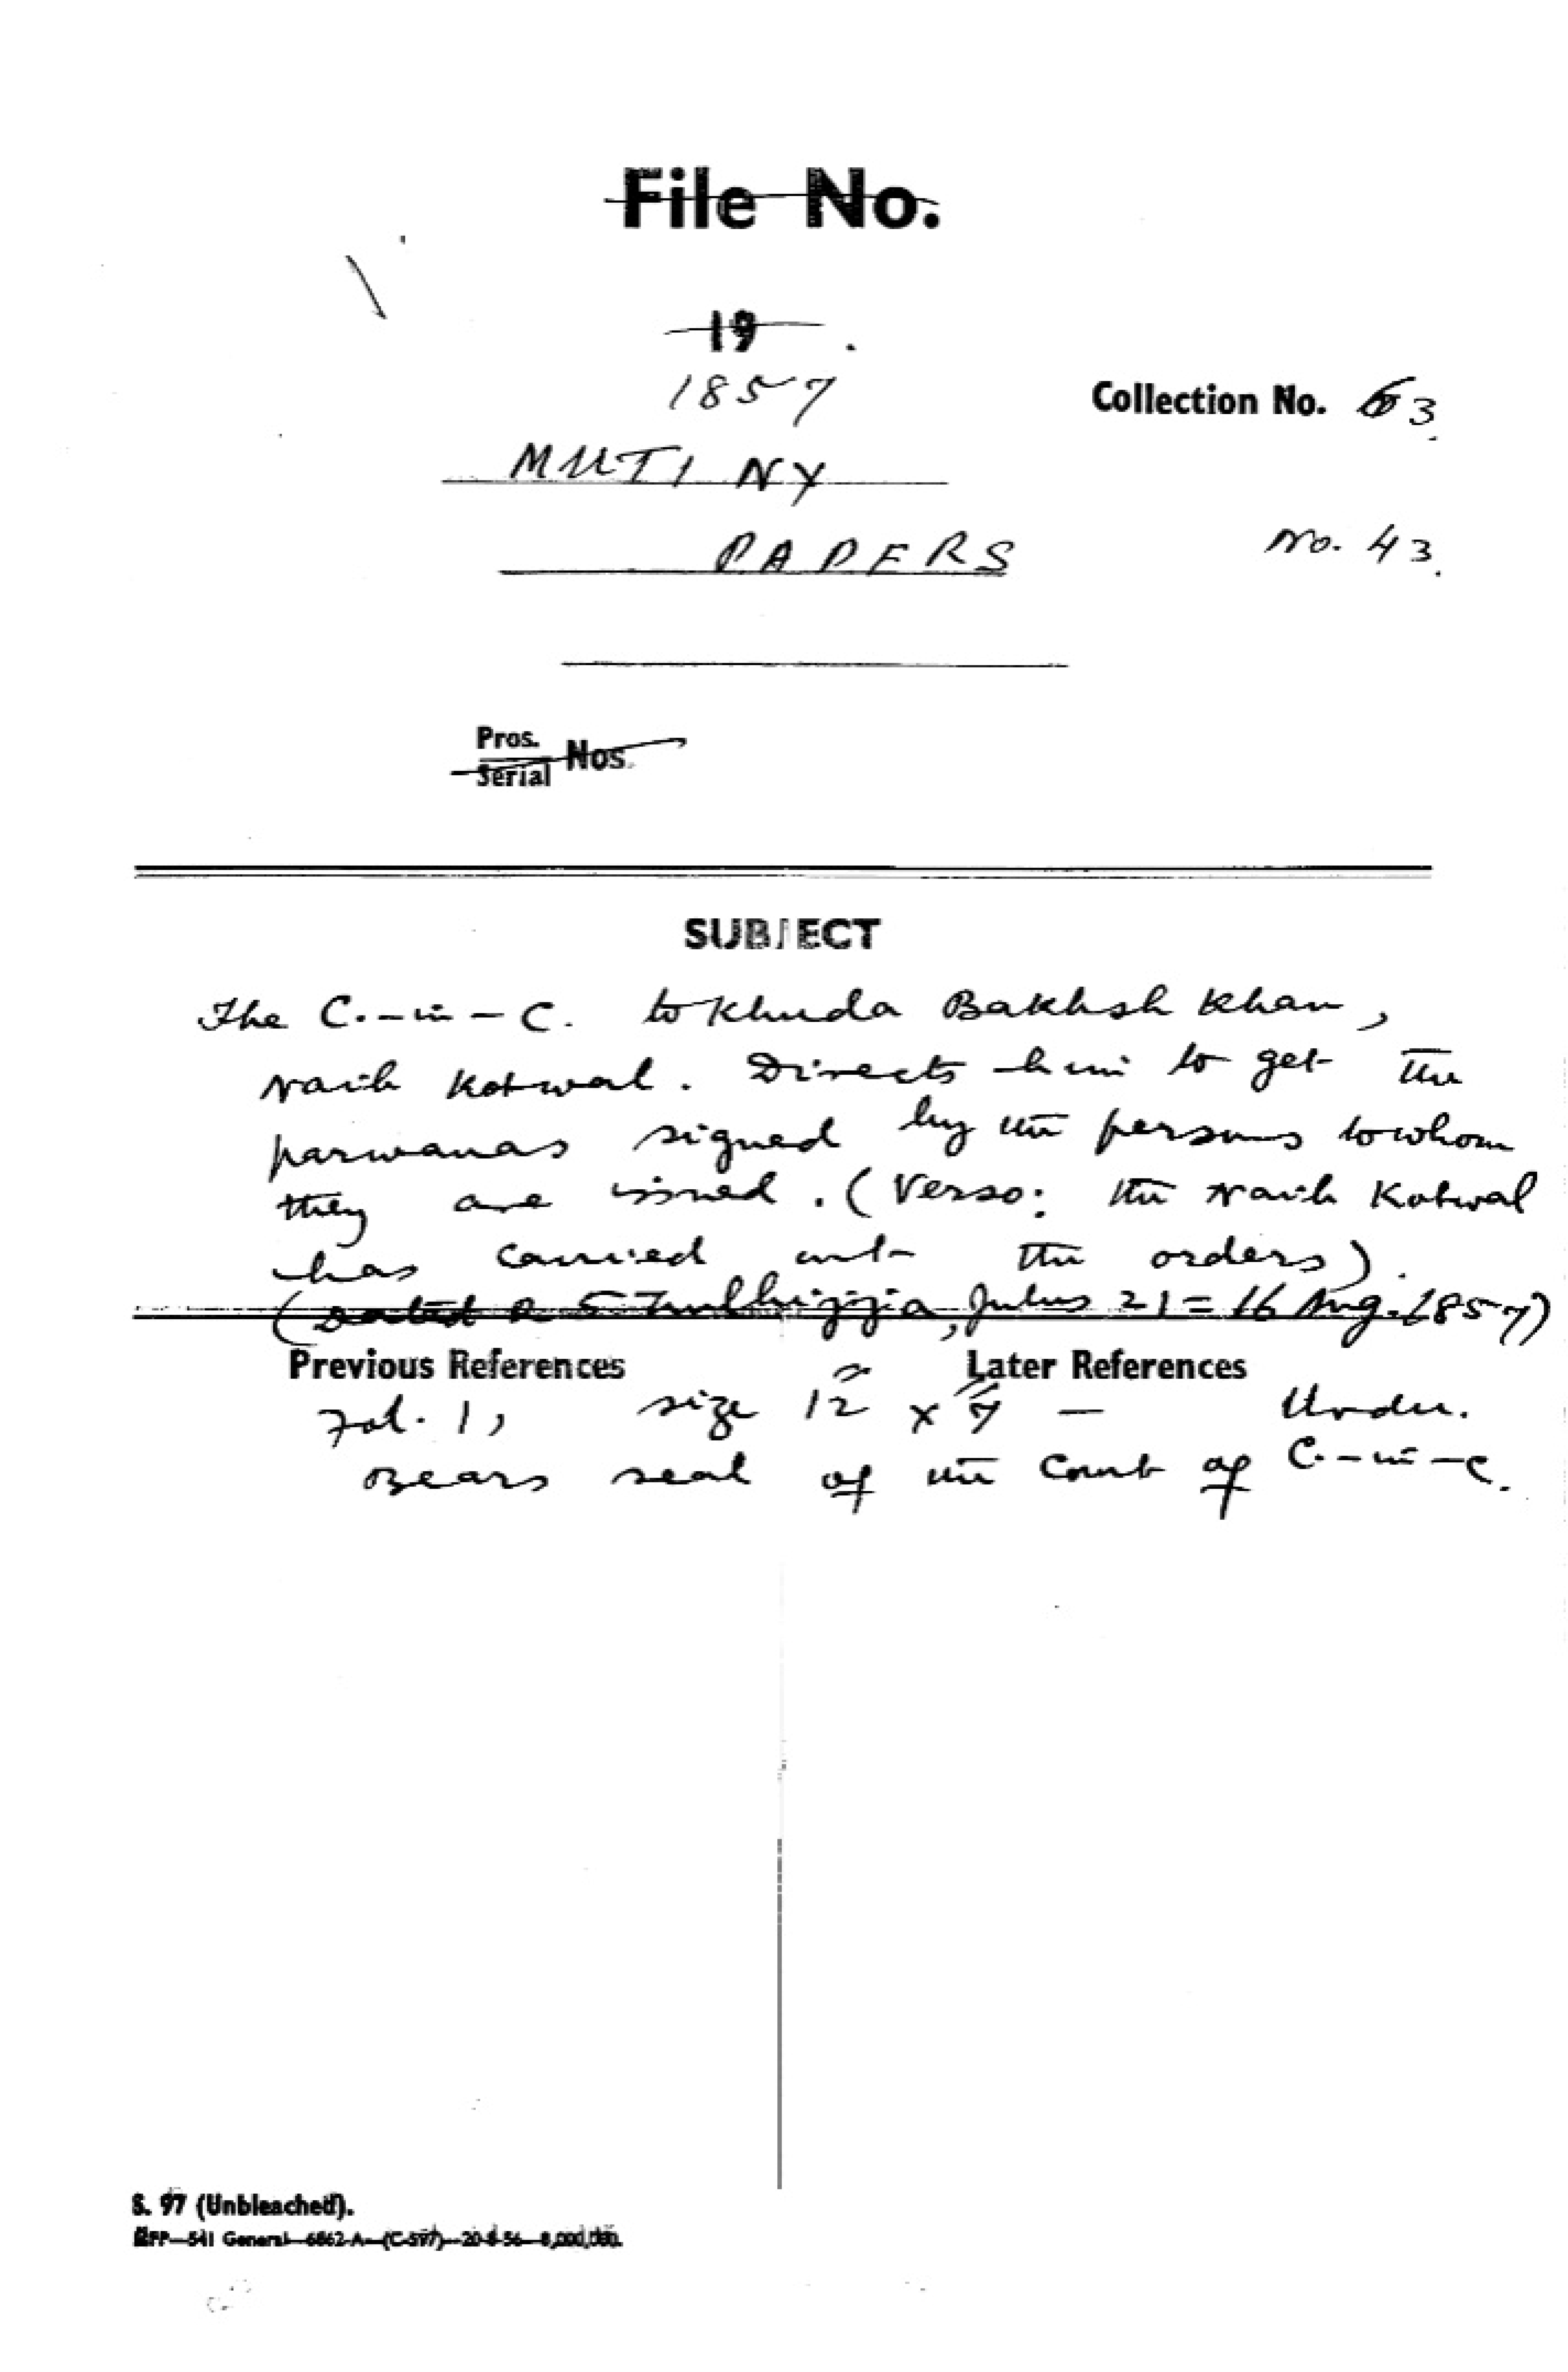 File No.
19 .
1857
Collection No. 63.
MUTINY
PAPERS
No. 43.
Pros.
Serial Nos.
SUBJECT
The C.-in-C. to Khuda Bakhsh Khan,
Naib Kotwal. Directs him to get the
parwanas signed by the persons to whom
they are issued. (Verso: the Naib Kotwal
has carried out the orders).
(Dated 25 Zulhijjia, Julus 21 = 16 Aug. 1857)
Previous References
Later References
Fol. 1, size 12" x 7" — Urdu.
Bears seal of the Court of C.-in-C.
S. 97 (Unbleached).
541 General—6862-A—(C-597)—20-8-56—8,000,000.